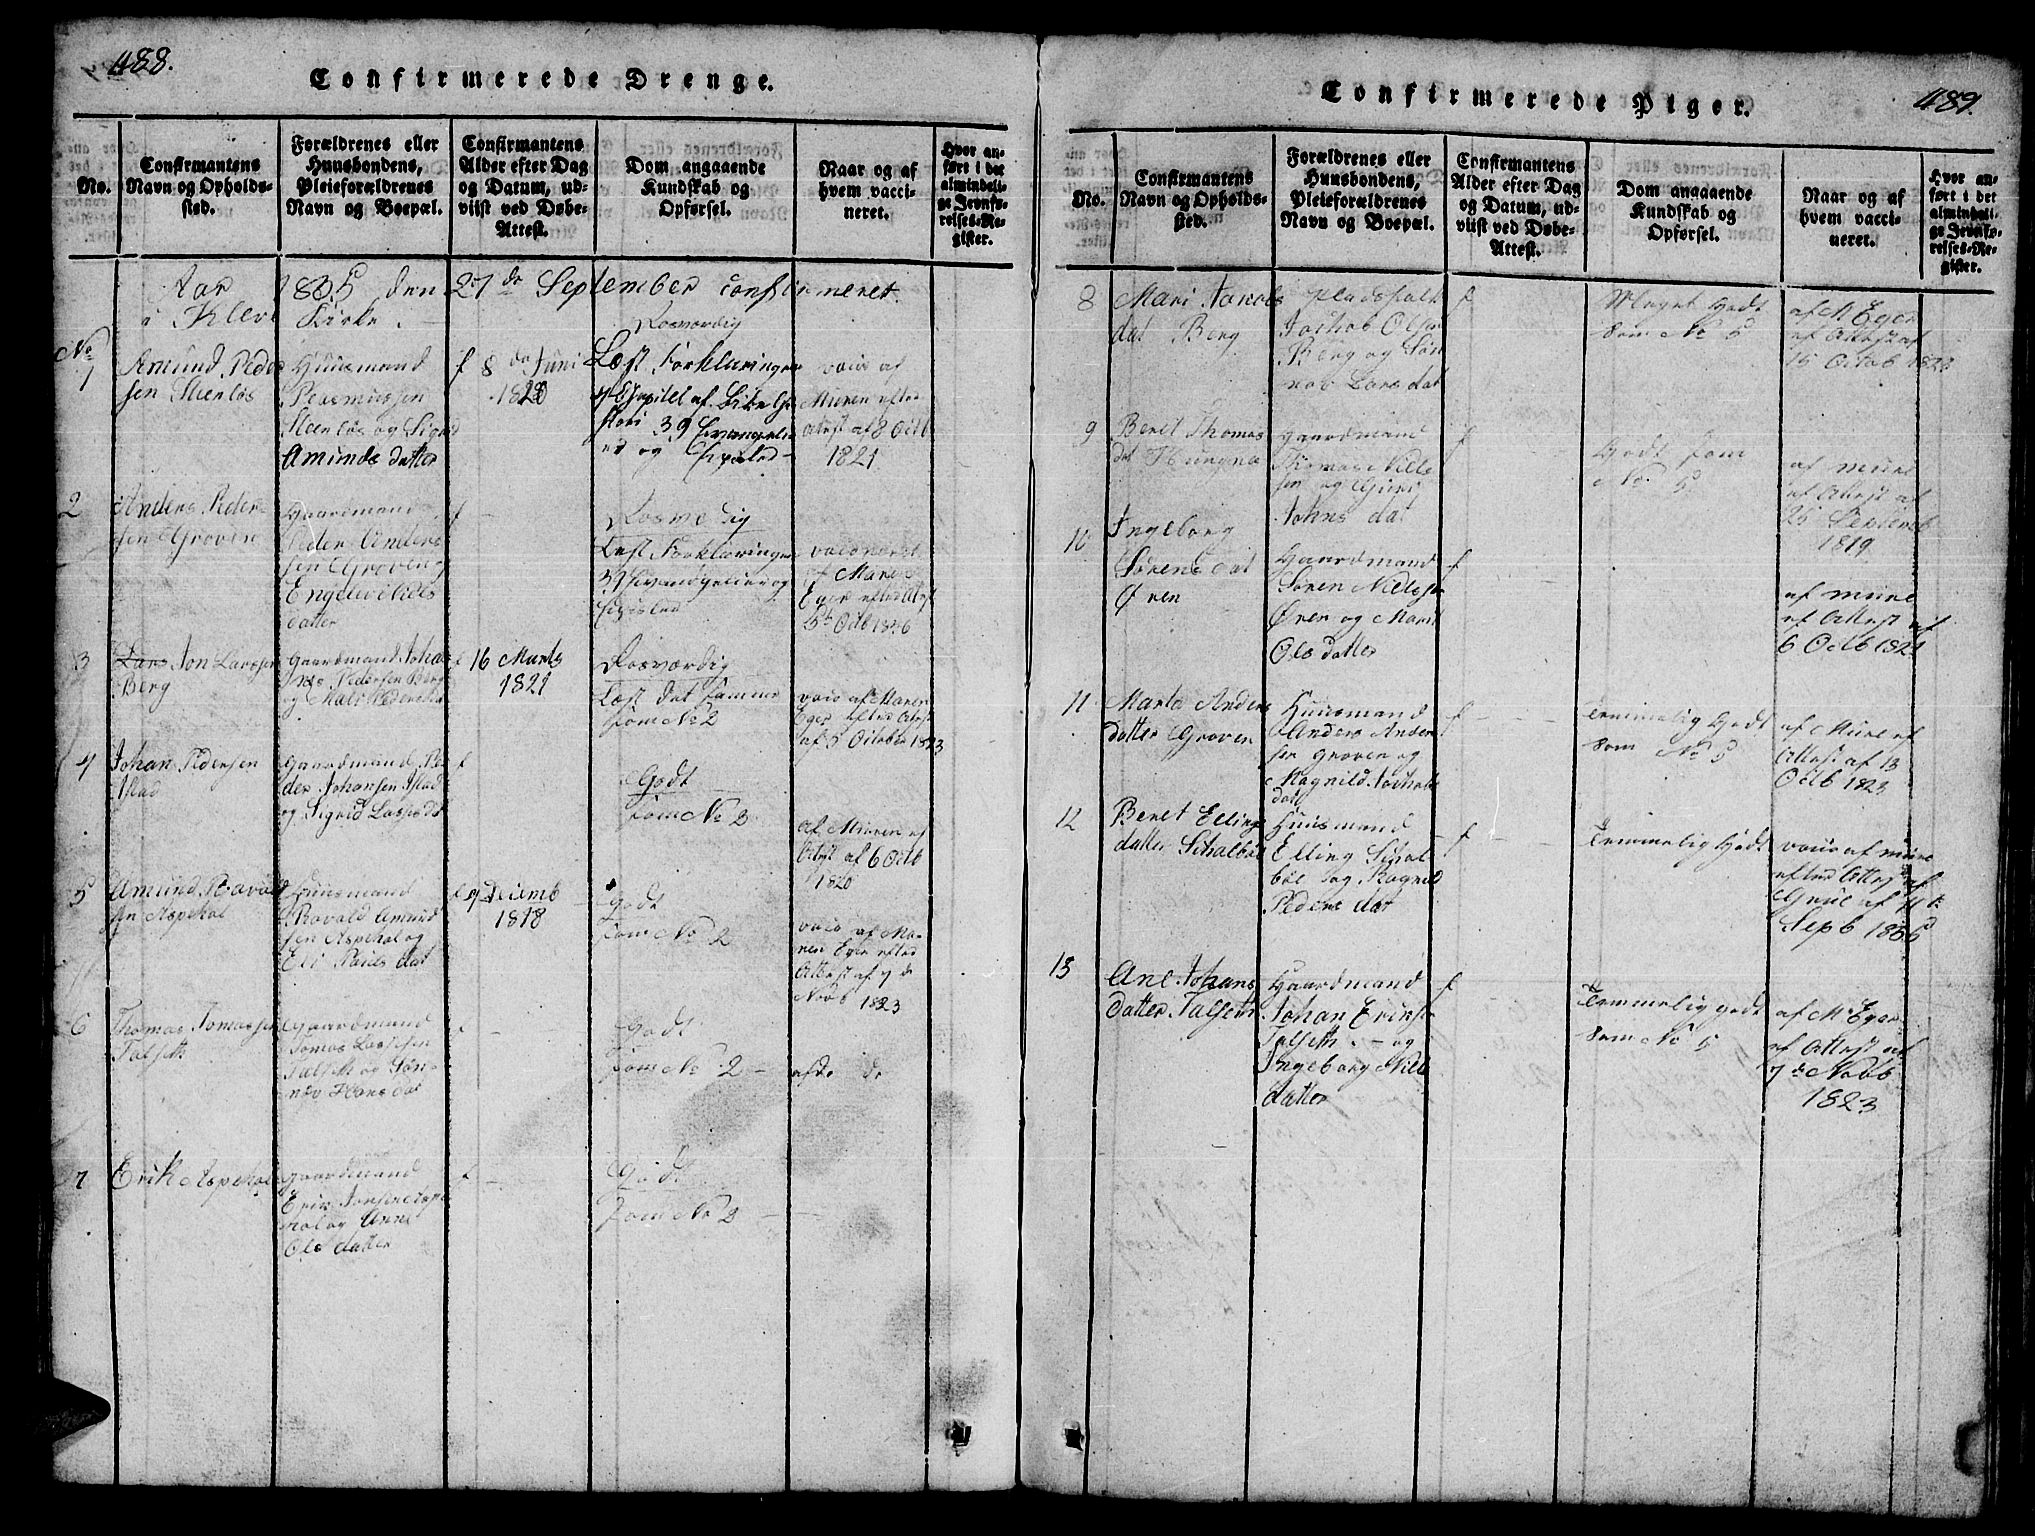 488.
Confirmerede Drenge.
No.
Confirmantens
Navn og Opholds-
sted.
Forældrenes eller
Huusbondens,
Pleieforældrenes
Navn og Boepæl.
Confirmantens
Alder efter Dag
og Datum, ud-
viist ved Døbe-
Attest.
Dom angaaende
Kundskab og
Opførsel.
Naar og af
hvem vacci-
neret.
Hvor an-
ført i det
almindeli-
ge Jevnfø-
relses-Re-
gister.
Aar 1835 den 27de September confirmeret
i Kleve Kirke.
No
1
Amund Peder
sen Steenløs
Huusmand
Peder Asmussen
Steenløs og Sigrid
Amunds datter
f 8 da Juni
1820
Rosværdig
Læst Forklaringen
39 Evangelie
er og Epistel
vacs af
Muren efter
Atest af 8 Octb
1821
2
Anders Peder-
sen Groven
Gaardmand
Peder Anders
sen Groven og
Engel Niels
datter
f
Læst Forklaringen
39 Evangelier og
Epistler
vacsineret
af Maren
Eger efter Atest
1826
3
Lars Jon Larssen
Berg
Gaardmand Johan
nes Pedersen Berg
og Mali Peders dat
f 16 Marts
1821
Rosværdig
Læst det samme
som No 2
vacs af Maren
Eger efter Atest
af 5 October 1823
4
Johan Pedersen
Istad
Gaardmand Pe
der Johansen Istad
og Sigrid Lasses dat
f
Godt
som No 2
af Muren af
Atest af 6 Octb
1820
5
Amund Ravald
sen Aspehol
Huusmand
Ravald Amund
sen Aspehol og
Eli Nils dat
f 9 Decemb
1818
Godt
som No 2
vacs af Ma-
ren Eger efter
Attest af 7 de
Novb 1823
6
Thomas Tomassen
Talseth
Gaardmand
Tomas Lassesen
Talseth og Søn-
nev Hans dat
f
Godt
som No 2
7
Erik Aspehol
Gaardmand
Erik Jonsen Aspe
hol og Anne
Ols datter
f
Godt
som No 2
Confirmerede Piger.
489.
No.
Confirmantens
Navn og Opholds-
sted.
Forældrenes eller
Huusbondens,
Pleieforældrenes
Navn og Boepæl.
Confirmantens
Alder efter Dag
og Datum, ud-
viist ved Døbe-
Attest.
Dom angaaende
Kundskab og
Opførsel.
Naar og af
hvem vacci-
neret.
Hvor an-
ført i det
almindeli-
ge Jevnfø-
relses-Re-
gister.
8
Mari Jacobs
dat Berg
Jachob Olsen
Berg og Søn
nov Lars dat
f
Meget Godt
som No 5
af M Eger
af Attest af
15 Octob 1823
9
Beret Thomas
dat
Gaardmand
Thomas Niels
sen og Guri
Johns dat
f
Godt som
No 5
af Mure
af Attest af
25 Septemb
1819
10
Ingeborg
Sørens dat
Øren
Gaardmand
Søren Nielssen
Øren og Marit
Ols datter
f
af Mure
af Attest af
6 Octb 1821
11
Marta Anders
datter Groven
Huusmand
Anders Ander
sen Groven og
Magnild Jachobs
dat
f
Temmelig Godt
som No 5
af Mure af
Attest af 13
Octb 1823
12
Beret Elling
datter Schalbøl
Huusmand
Elling Schal
bøl og Ragnild
Peders dat
f
Temmelig Godt
vacs af Mure
efter Attest af
Sepb 1835
13
Ane Johans
datter Talseth
Gaardmand
Johan Erikse
Talseth og
Ingeborg Nils
datter
f
Temmelig godt
som No 5
af M Eger
af Attest af
7de Novb
1823